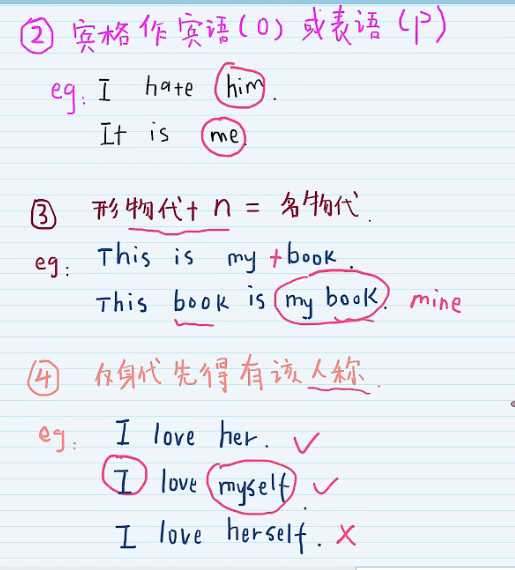 ② 宾格作宾语(O)或表语(P)
eg: I hate him.
It is me.
③ 形物代+ n = 名物代.
eg: This is my + book.
This book is my book. mine
④ 反身代先得有该人称.
eg: I love her. ✓
I love myself. ✓
I love herself. ×